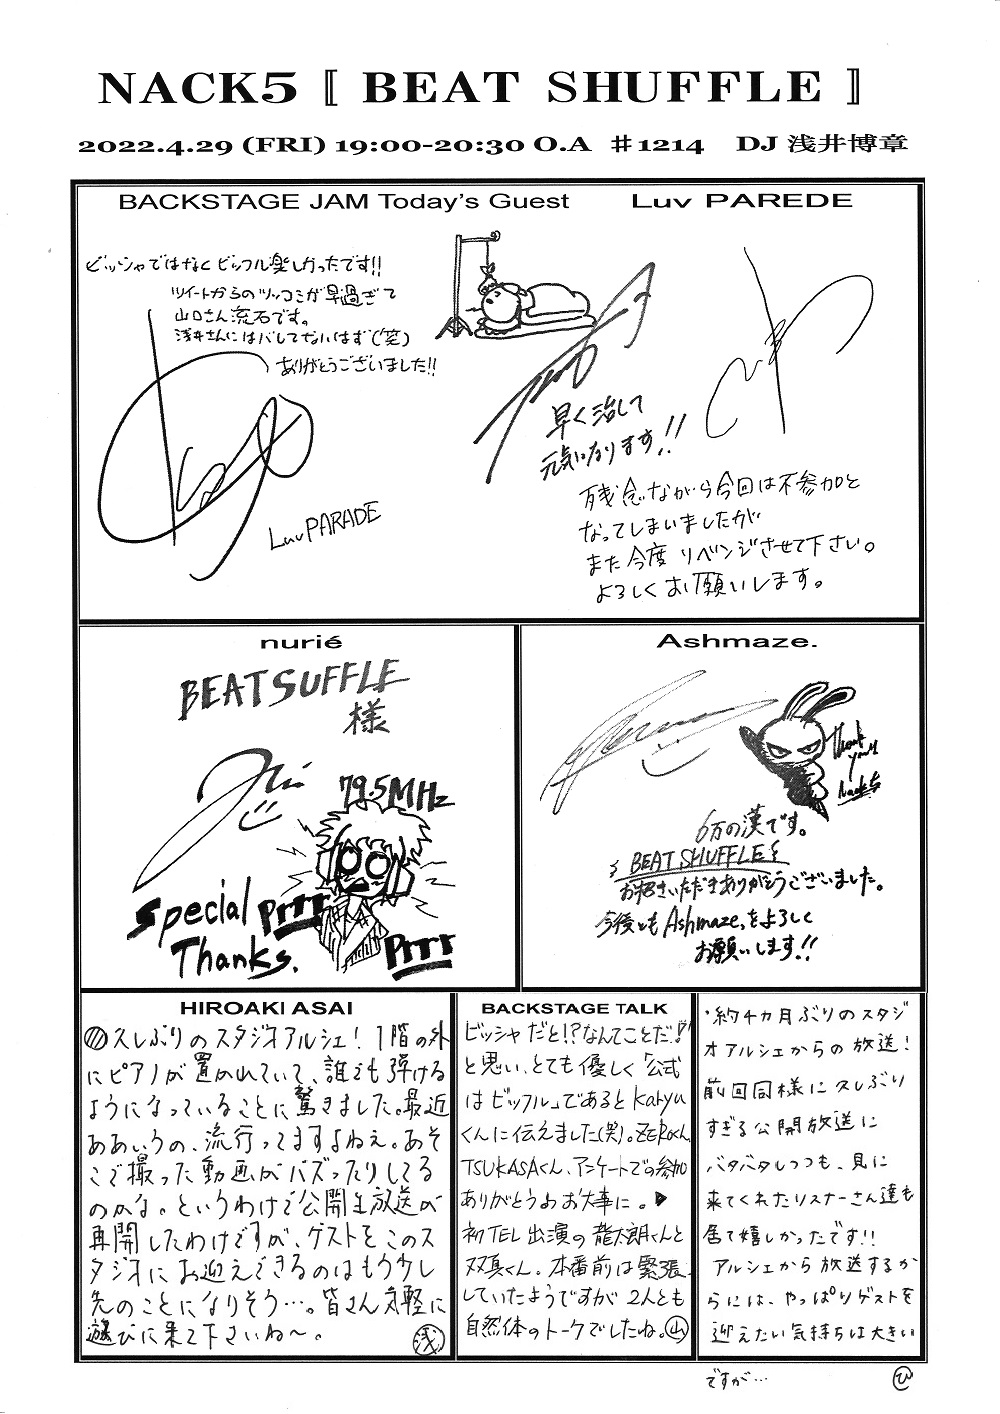 NACK5 〚 BEAT SHUFFLE 〛
2022.4.29 (FRI) 19:00-20:30 O.A ♯1214 DJ 浅井博章
BACKSTAGE JAM Today's Guest Luv PAREDE
ビッシャではなくビッフル楽しかったです!!
ツイートからのツッコミが早過ぎて
山口さん流石です。
浅井さんにはバレてないはず(笑)
ありがとうございました!!
Luv PARADE
早く治して
元気になります!!
残念ながら今回は不参加と
なってしまいましたが
また今度リベンジさせて下さい。
よろしくお願いします。
nurié
BEAT SUFFLE
様
79.5MHz
Special
Thanks.
Prrr
Prrr
Ashmaze.
Thank
you!!
Nack5
6万の漢です。
BEAT SHUFFLE
お招きいただきありがとうございました。
今後ともAshmaze.をよろしく
お願いします!!
HIROAKI ASAI
久しぶりのスタジオアルシェ！1階の外
にピアノが置かれていて、誰でも弾ける
ようになっていることに驚きました。最近
ああいうの、流行ってますよねぇ。あそ
こで撮った動画がバズったりしてる
のかな。というわけで公開生放送が
再開したわけですが、ゲストをこのス
タジオにお迎えできるのはもう少し
先のことになりそう…。皆さん気軽に
遊びに来て下さいね〜。
浅
BACKSTAGE TALK
ビッシャだと!?なんてことだ!!
と思い、とても優しく「公式
はビッフル」であるとKaryu
くんに伝えました(笑)。ZEROくん、
TSUKASAくん、アンケートでの参加
ありがとう&お大事に。▶
初TEL出演の龍太朗くんと
双真くん。本番前は緊張
していたようですが2人とも
自然体のトークでしたね。山
・約4ヵ月ぶりのスタジ
オアルシェからの放送！
前回同様に久しぶり
すぎる公開放送に
バタバタしつつも、見に
来てくれたリスナーさん達も
居て嬉しかったです!!
アルシェから放送するか
らには、やっぱりゲストを
迎えたい気持ちは大きい
ですが…
ひ